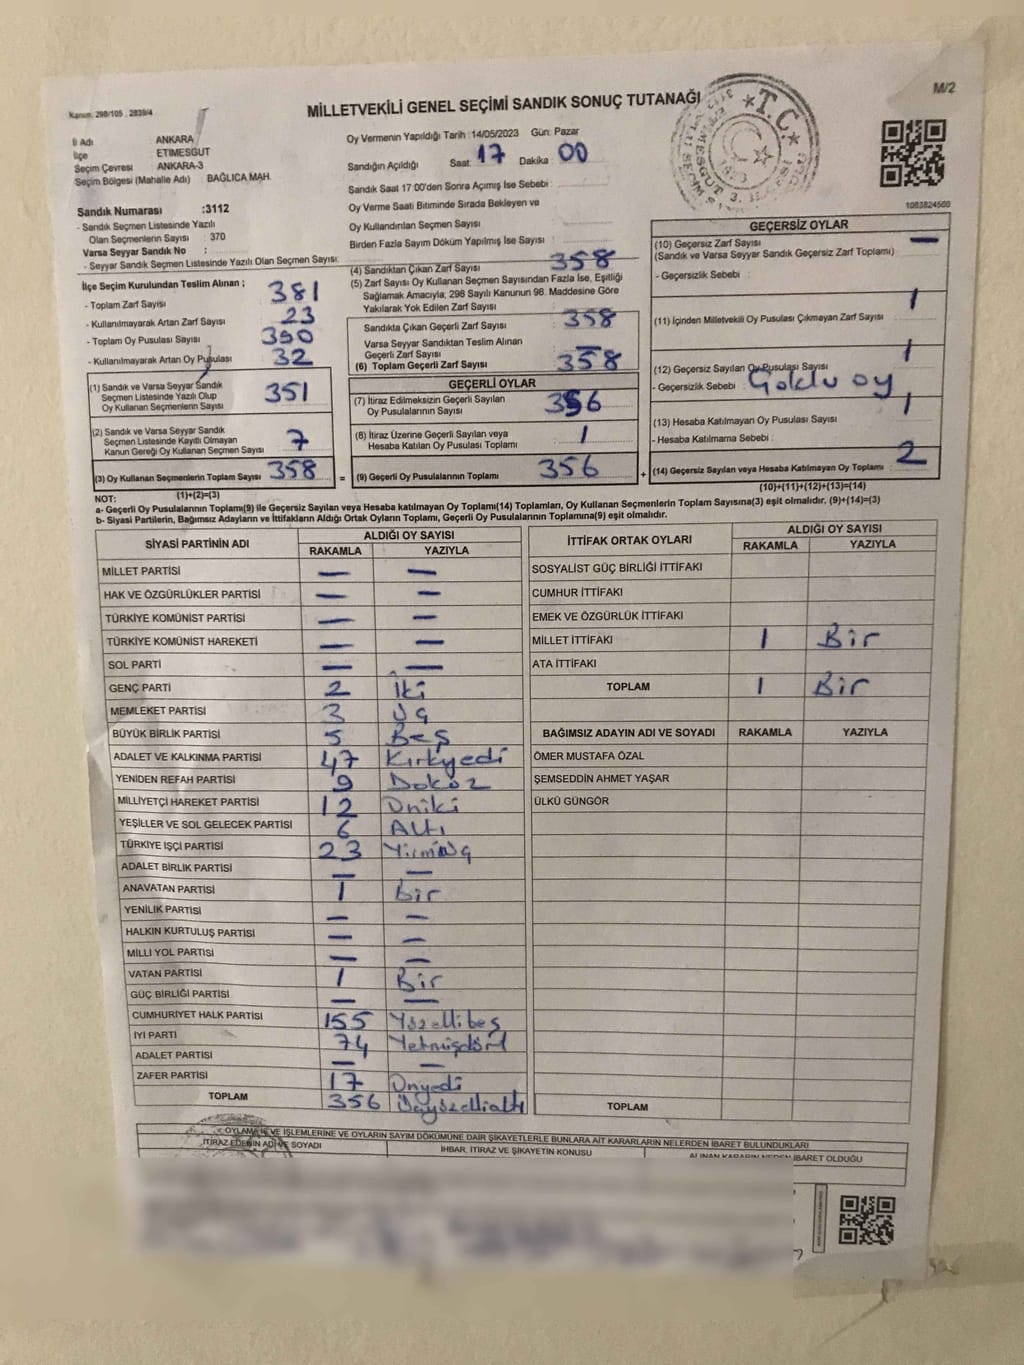 Kanun: 298/105 , 2839/4
M/2
MİLLETVEKİLİ GENEL SEÇİMİ SANDIK SONUÇ TUTANAĞI
İl Adı ANKARA
İlçe ETIMESGUT
Seçim Çevresi ANKARA-3
Seçim Bölgesi (Mahalle Adı) : BAĞLICA MAH.
Sandık Numarası :3112
- Sandık Seçmen Listesinde Yazılı
Olan Seçmenlerin Sayısı : 370
Varsa Seyyar Sandık No :
- Seyyar Sandık Seçmen Listesinde Yazılı Olan Seçmen Sayısı:
Oy Vermenin Yapıldığı Tarih :14/05/2023 Gün: Pazar
Sandığın Açıldığı Saat: 17 Dakika : 00
Sandık Saat 17 00'den Sonra Açımış İse Sebebi :
Oy Verme Saati Bitiminde Sırada Bekleyen ve
Oy Kullandırılan Seçmen Sayısı :
Birden Fazla Sayım Döküm Yapılmış İse Sayısı :
T.C.
1083824500
İlçe Seçim Kurulundan Teslim Alınan ;
- Toplam Zarf Sayısı : 381
- Kullanılmayarak Artan Zarf Sayısı : 23
- Toplam Oy Pusulası Sayısı : 390
- Kullanılmayarak Artan Oy Pusulası : 32
(1) Sandık ve Varsa Seyyar Sandık
Seçmen Listesinde Yazılı Olup
Oy Kullanan Seçmenlerin Sayısı : 351
(2) Sandık ve Varsa Seyyar Sandık
Seçmen Listesinde Kayıtlı Olmayan
Kanun Gereği Oy Kullanan Seçmen Sayısı : 7
(3) Oy Kullanan Seçmenlerin Toplam Sayısı : 358
(1)+(2)=(3)
(4) Sandıktan Çıkan Zarf Sayısı : 358
(5) Zarf Sayısı Oy Kullanan Seçmen Sayısından Fazla İse, Eşitliği
Sağlamak Amacıyla; 298 Sayılı Kanunun 98. Maddesine Göre
Yakılarak Yok Edilen Zarf Sayısı :
Sandıkta Çıkan Geçerli Zarf Sayısı : 358
Varsa Seyyar Sandıktan Teslim Alınan
Geçerli Zarf Sayısı : —
(6) Toplam Geçerli Zarf Sayısı : 358
GEÇERLİ OYLAR
(7) İtiraz Edilmeksizin Geçerli Sayılan
Oy Pusulalarının Sayısı : 356
(8) İtiraz Üzerine Geçerli Sayılan veya
Hesaba Katılan Oy Pusulası Toplamı : 1
= (9) Geçerli Oy Pusulalarının Toplamı : 356
GEÇERSİZ OYLAR
(10) Geçersiz Zarf Sayısı : —
(Sandık ve Varsa Seyyar Sandık Geçersiz Zarf Toplamı)
- Geçersizlik Sebebi :
(11) İçinden Milletvekili Oy Pusulası Çıkmayan Zarf Sayısı : 1
(12) Geçersiz Sayılan Oy Pusulası Sayısı : 1
- Geçersizlik Sebebi :
(13) Hesaba Katılmayan Oy Pusulası Sayısı : 1
- Hesaba Katılmama Sebebi :
+ (14) Geçersiz Sayılan veya Hesaba Katılmayan Oy Toplamı : 2
(10)+(11)+(12)+(13)=(14)
NOT:
a- Geçerli Oy Pusulasının Toplamı(9) ile Geçersiz Sayılan veya Hesaba katılmayan Oy Toplamı(14) Toplamları, Oy Kullanan Seçmenlerin Toplam Sayısına(3) eşit olmalıdır. (9)+(14)=(3)
b- Siyasi Partilerin, Bağımsız Adayların ve İttifakların Aldığı Ortak Oyların Toplamı, Geçerli Oy Pusulalarının Toplamına(9) eşit olmalıdır.
SİYASİ PARTİNİN ADI ALDIĞI OY SAYISI
RAKAMLA YAZIYLA
MİLLET PARTİSİ — —
HAK VE ÖZGÜRLÜKLER PARTİSİ — —
TÜRKİYE KOMÜNİST PARTİSİ — —
TÜRKİYE KOMÜNİST HAREKETİ — —
SOL PARTİ — —
GENÇ PARTİ 2 İki
MEMLEKET PARTİSİ 3 Üç
BÜYÜK BİRLİK PARTİSİ 5 Beş
ADALET VE KALKINMA PARTİSİ 47 Kırkyedi
YENİDEN REFAH PARTİSİ 9 Dokuz
MİLLİYETÇİ HAREKET PARTİSİ 12 Oniki
YEŞİLLER VE SOL GELECEK PARTİSİ 6 Altı
TÜRKİYE İŞÇİ PARTİSİ 23 Yirmiüç
ADALET BİRLİK PARTİSİ — —
ANAVATAN PARTİSİ 1 Bir
YENİLİK PARTİSİ — —
HALKIN KURTULUŞ PARTİSİ — —
MİLLİ YOL PARTİSİ — —
VATAN PARTİSİ 1 Bir
GÜÇ BİRLİĞİ PARTİSİ — —
CUMHURİYET HALK PARTİSİ 155 Yüzellibeş
İYİ PARTİ 74 Yetmişdört
ADALET PARTİSİ — —
ZAFER PARTİSİ 17 Onyedi
TOPLAM 356 Üçyüzellialtı
İTTİFAK ORTAK OYLARI ALDIĞI OY SAYISI
RAKAMLA YAZIYLA
SOSYALİST GÜÇ BİRLİĞİ İTTİFAKI
CUMHUR İTTİFAKI
EMEK VE ÖZGÜRLÜK İTTİFAKI
MİLLET İTTİFAKI 1 Bir
ATA İTTİFAKI
TOPLAM 1 Bir
BAĞIMSIZ ADAYIN ADI VE SOYADI RAKAMLA YAZIYLA
ÖMER MUSTAFA ÖZAL
ŞEMSEDDİN AHMET YAŞAR
ÜLKÜ GÜNGÖR
TOPLAM
OYLAMA İŞ VE İŞLEMLERİNE VE OYLARIN SAYIM DÖKÜMÜNE DAİR ŞİKAYETLERLE BUNLARA AİT KARARLARIN NELERDEN İBARET BULUNDUKLARI
İTİRAZ EDENİN ADI VE SOYADI İHBAR, İTİRAZ VE ŞİKAYETİN KONUSU ALINAN KARARIN NEDEN İBARET OLDUĞU